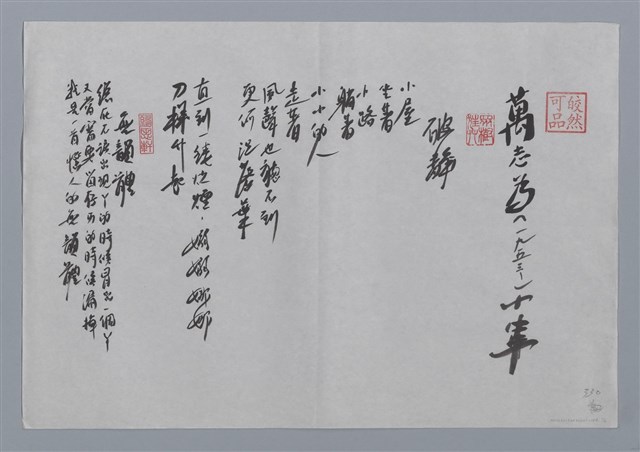 皎然可品
萬志為（一九五三～）小輯
破靜
小屋
坐着
小路
躺着
小小的人
走着
風聲也聽不到
更何況落葉
直到一縷炊煙，嫋嫋娜娜
刀樣升起
無韻體
總在不該出現丫的時候冒出一個丫
又常常要留丫的時候漏掉
我是一首人的無韻體
330